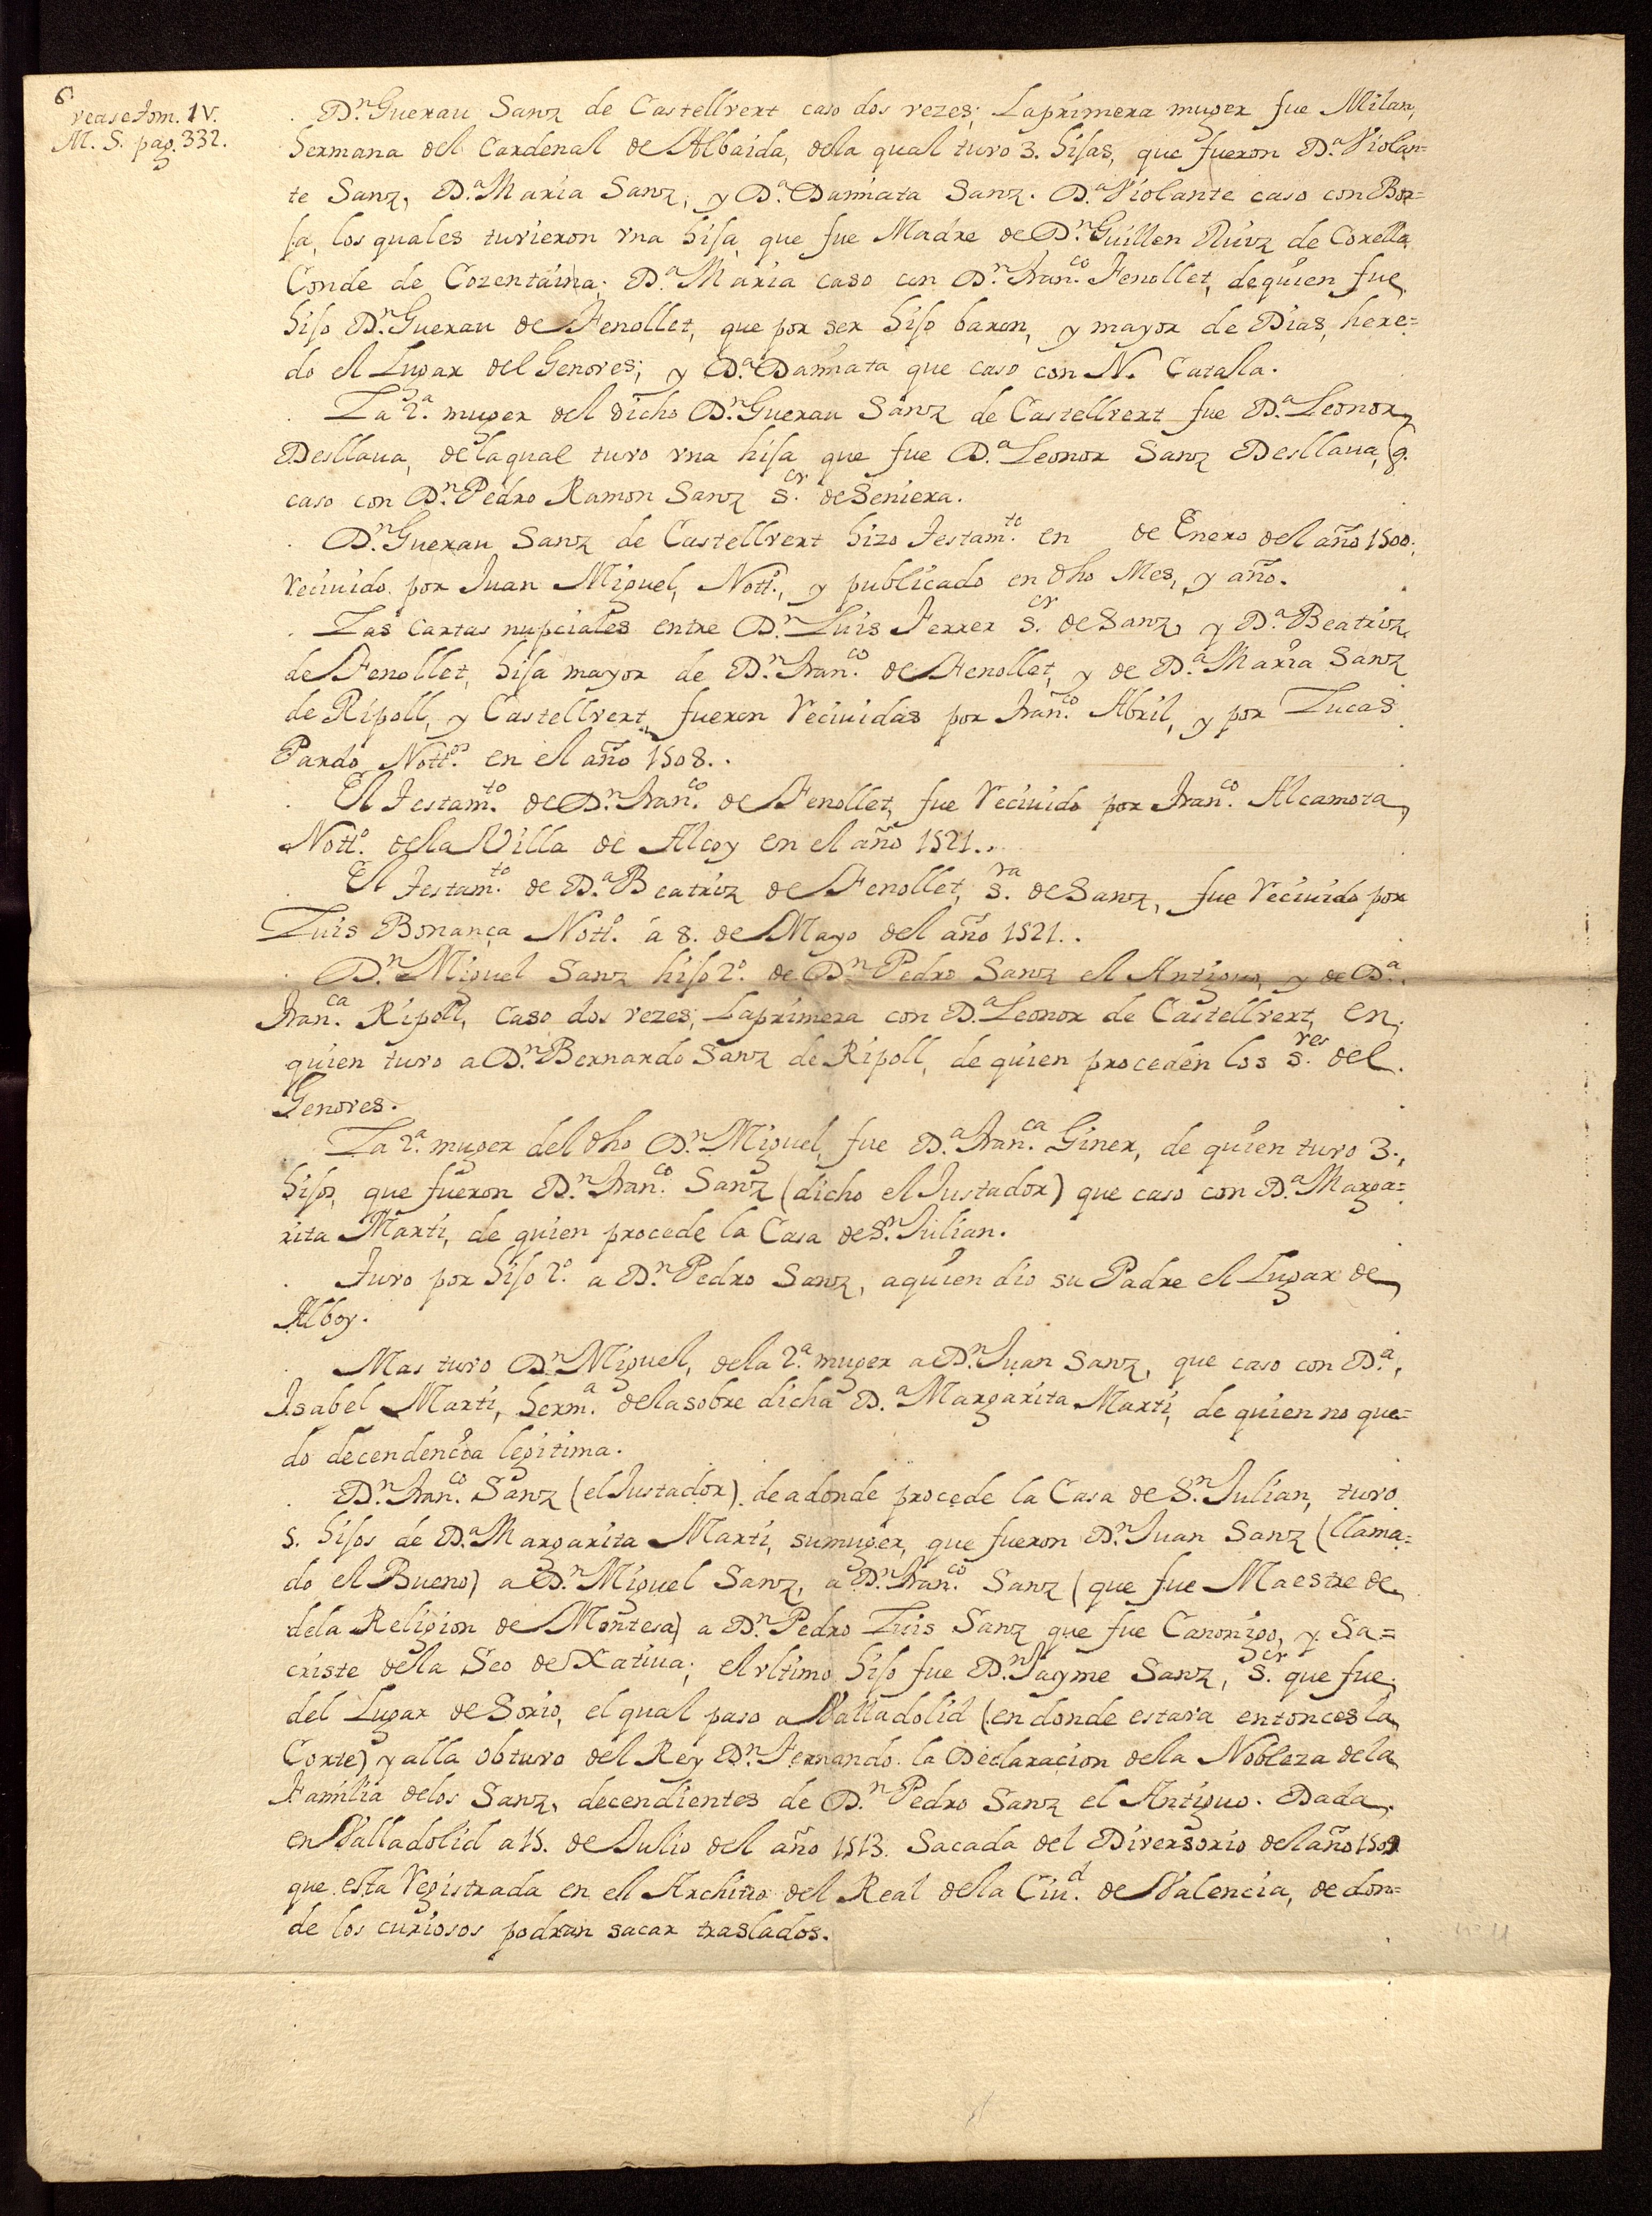 6
vease Tom. IV.
M. S. pag. 332.
Dⁿ. Guerau Sanz de Castellvert caso dos vezes; La primera muger fue Milan,
hermana del Cardenal de Albaida, dela qual tuvo 3. hijas, que fueron Dª. Violan=
te Sanz, Dª. Maria Sanz, y Dª. Damiata Sanz. Dª. Violante caso con Bor=
ja, los quales tuvieron vna hija que fue Madre de Dⁿ. Guillen Ruiz de Corella
Conde de Cozentaina; Dª. Maria caso con Dⁿ. Franᶜᵒ. Fenollet, de quien fue
hijo Dⁿ. Guerau de Fenollet, que por ser hijo baron, y mayor de Dias, here=
do el Lugar del Genoves; y Dª. Damiata que caso con N. Catala.
La 2ª. muger del dicho Dⁿ. Guerau Sanz de Castellvert fue Dª. Leonor
Desllaua, dela qual tuvo vna hija que fue Dª. Leonor Sanz Desllaua, q.
caso con Dⁿ. Pedro Ramon Sanz S.ᵒʳ de Seniera.
Dⁿ. Guerau Sanz de Castellvert hizo Testam.ᵗᵒ en de Enero del año 1500.
reciuido por Juan Miguel, Nottº., y publicado en dho Mes, y año.
Las cartas nupciales entre Dⁿ. Luis Ferrer S.ᵒʳ de Sanz, y Dª. Beatriz
de Fenollet, hija mayor de Dⁿ. Franᶜᵒ. de Fenollet, y de Dª. Maria Sanz
de Ripoll, y Castellvert, fueron reciuidas por Franᶜᵒ. Abril, y por Lucas
Pardo Nottᵒˢ. en el año 1508..
El Testam.ᵗᵒ de Dⁿ. Franᶜᵒ. de Fenollet, fue reciuido por Franᶜᵒ. Alcamora,
Nottº. dela Villa de Alcoy en el año 1521..
El Testam.ᵗᵒ de Dª. Beatriz de Fenollet, S.ʳᵃ de Sanz, fue reciuido por
Luis Bonança Nottº. á 8. de Mayo del año 1521..
Dⁿ. Miguel Sanz hijo 2º. de Dⁿ. Pedro Sanz el Antiguo, y de Dª.
Franᶜᵃ. Ripoll, caso dos vezes; La primera con Dª. Leonor de Castellvert, en
quien tuvo a Dⁿ. Bernardo Sanz de Ripoll, de quien proceden los S.ʳᵉˢ del
Genoves.
La 2ª. muger del dho Dⁿ. Miguel, fue Dª. Franᶜᵃ. Giner, de quien tuvo 3.
hijos, que fueron Dⁿ. Franᶜᵒ. Sanz (dicho el Justador) que caso con Dª. Marga=
rita Marti, de quien procede la Casa de Sⁿ. Julian.
Tuvo por hijo 2º. a Dⁿ. Pedro Sanz, a quien dio su Padre el Lugar de
Alboy.
Mas tuvo Dⁿ. Miguel, dela 2ª. muger a Dⁿ. Juan Sanz, que caso con Dª.
Isabel Marti, hermª. dela sobre dicha Dª. Margarita Marti, de quien no que=
do decendencia legitima.
Dⁿ. Franᶜᵒ. Sanz (el Justador) de adonde procede la Casa de Sⁿ. Julian, tuvo
5. hijos de Dª. Margarita Marti, su muger, que fueron Dⁿ. Juan Sanz (llama=
do el Bueno) a Dⁿ. Miguel Sanz, a Dⁿ. Franᶜᵒ. Sanz (que fue Maestre de
dela Religion de Montesa) a Dⁿ. Pedro Luis Sanz que fue Canonigo, y Sa=
criste dela Seo de Xatiua; el vltimo hijo fue Dⁿ. Jayme Sanz, S.ᵒʳ que fue
del Lugar de Sorio, el qual paso a Valladolid (en donde estava entonces la
Corte) y alla obtuvo del Rey Dⁿ. Fernando la Declaracion dela Nobleza dela
Familia delos Sanz, decendientes de Dⁿ. Pedro Sanz el Antiguo. Dada
en Valladolid a 15. de Julio del año 1513. Sacada del Diversorio del año 1509
que esta registrada en el Archiuo del Real dela Ciuᵈ. de Valencia, de don=
de los curiosos podran sacar traslados.